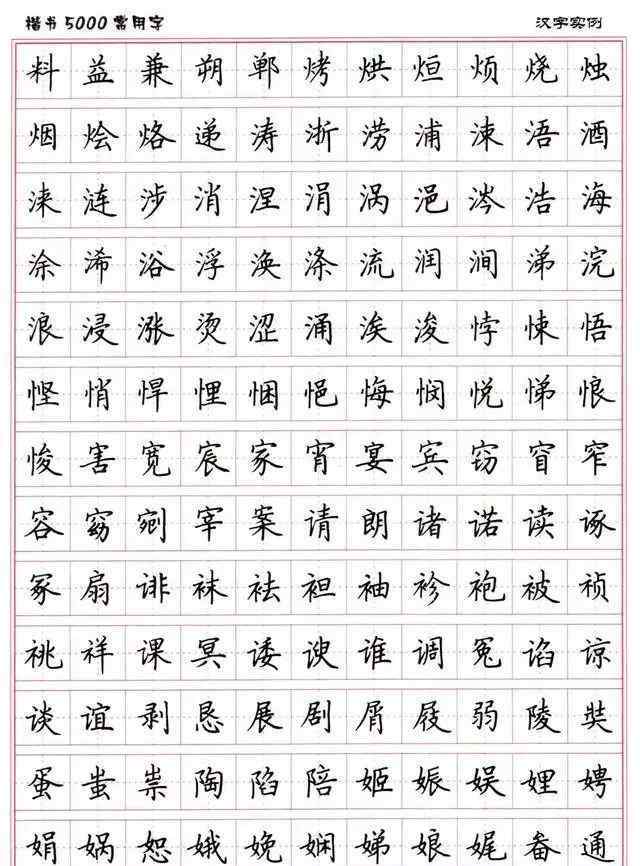 楷书5000常用字 汉字实例
料益兼朔郸烤烘烜烦烧烛
烟烩烙递涛浙涝浦涑浯酒
涞涟涉消涅涓涡浥涔浩海
涂浠浴浮涣涤流润涧涕浣
浪浸涨烫涩涌涘浚悖悚悟
悭悄悍悝悃悒悔悯悦悌悢
悛害宽宸家宵宴宾窈窅窄
容窈剜宰案请朗诸诺读诼
冢扇诽袜祛袒袖袗袍被祯
祧祥课冥诿谀谁调冤谄谅
谈谊剥恳展剧屑屐弱陵奘
蛋蚩祟陶陷陪姬娠娱娌娉
娟娲恕娥娩娴娣娘娓畚通